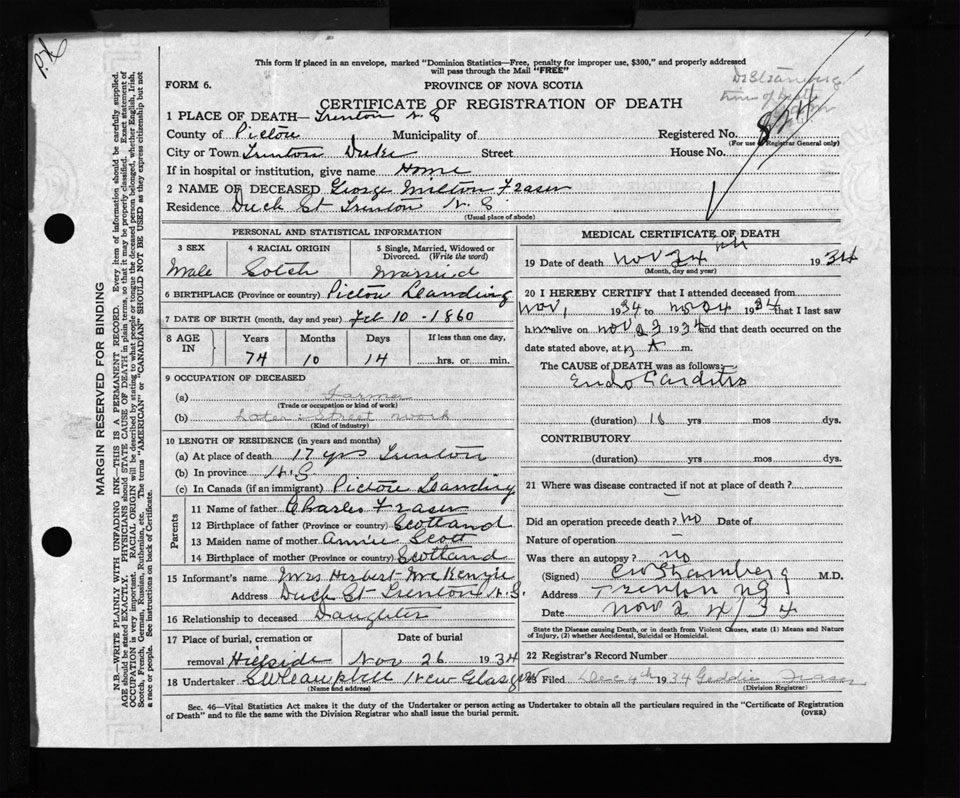 This form if placed in an envelope, marked "Dominion Statistics—Free, penalty for improper use, $300," and properly addressed
will pass through the Mail "FREE"
FORM 6.
PROVINCE OF NOVA SCOTIA
CERTIFICATE OF REGISTRATION OF DEATH
1 PLACE OF DEATH— Trenton N. S
County of Pictou Municipality of Registered No.
(For use of Registrar General only)
City or Town Trenton Duke Street House No.
If in hospital or institution, give name Home
2 NAME OF DECEASED George Milton Fraser
Residence Duck St Trenton N. S
(Usual place of abode)
MARGIN RESERVED FOR BINDING
N.B.—WRITE PLAINLY WITH UNFADING INK—THIS IS A PERMANENT RECORD. Every item of information should be carefully supplied.
AGE should be stated EXACTLY. PHYSICIANS should STATE CAUSE OF DEATH in plain terms, so that it may be properly classified. Exact statement of
OCCUPATION is very important. RACIAL ORIGIN will be described by stating to what people or tongue the deceased person belonged, whether English, Irish,
Scotch, French, German, Russian, Ruthenian, etc. The terms "AMERICAN" or "CANADIAN" SHOULD NOT BE USED as they express citizenship but not
a race or people. See instructions on back of Certificate.
PERSONAL AND STATISTICAL INFORMATION
3 SEX
Male
4 RACIAL ORIGIN
Scotch
5 Single, Married, Widowed or
Divorced. (Write the word)
Married
6 BIRTHPLACE (Province or country) Pictou Landing
7 DATE OF BIRTH (month, day and year) Feb 10 - 1860
8 AGE
IN
Years Months Days If less than one day,
74 10 14 hrs. or min.
9 OCCUPATION OF DECEASED
(a) Farmer
(Trade or occupation or kind of work)
(b) Later Street work
(Kind of industry)
10 LENGTH OF RESIDENCE (in years and months)
(a) At place of death 17 yrs Trenton
(b) In province N. S
(c) In Canada (if an immigrant) Pictou Landing
Parents
11 Name of father Charles Fraser
12 Birthplace of father (Province or country) Scotland
13 Maiden name of mother Annie Scott
14 Birthplace of mother (Province or country) Scotland
15 Informant's name Mrs Herbert McKenzie
Address Duck St Trenton N. S.
16 Relationship to deceased Daughter
17 Place of burial, cremation or Date of burial
removal Hillside Nov 26 1934
18 Undertaker New Glasgow
(Name and address)
MEDICAL CERTIFICATE OF DEATH
19 Date of death Nov 24 th 1934
(Month, day and year)
20 I HEREBY CERTIFY that I attended deceased from
Nov 1 1934 to Nov 24 1934 that I last saw
him alive on Nov 23 1934 and that death occurred on the
date stated above, at A m.
The CAUSE of DEATH was as follows:
Endo Carditis
(duration) 18 yrs mos dys.
CONTRIBUTORY
(duration) yrs mos dys.
21 Where was disease contracted if not at place of death?
Did an operation precede death? no Date of
Nature of operation
Was there an autopsy? no
(Signed) M.D.
Address Trenton N S
Date Nov 24/34
State the Disease causing Death, or in death from Violent Causes, state (1) Means and Nature
of Injury, (2) whether Accidental, Suicidal or Homicidal.
22 Registrar's Record Number
23 Filed Dec 4th 1934 Geddie Fraser
(Division Registrar)
Sec. 46—Vital Statistics Act makes it the duty of the Undertaker or person acting as Undertaker to obtain all the particulars required in the "Certificate of Registration
of Death" and to file the same with the Division Registrar who shall issue the burial permit.
(OVER)